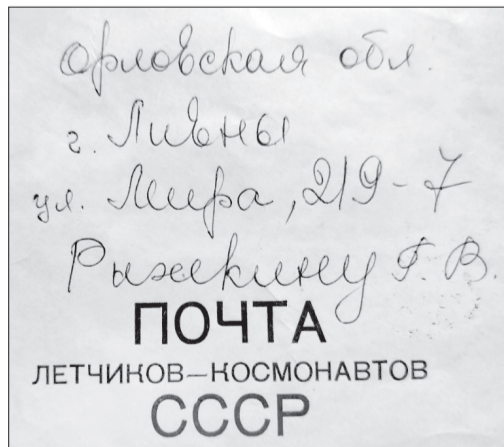 Орловская обл.
г. Ливны
ул. Мира, 219-7
Рыжкину Г. В.
ПОЧТА
ЛЕТЧИКОВ—КОСМОНАВТОВ
СССР